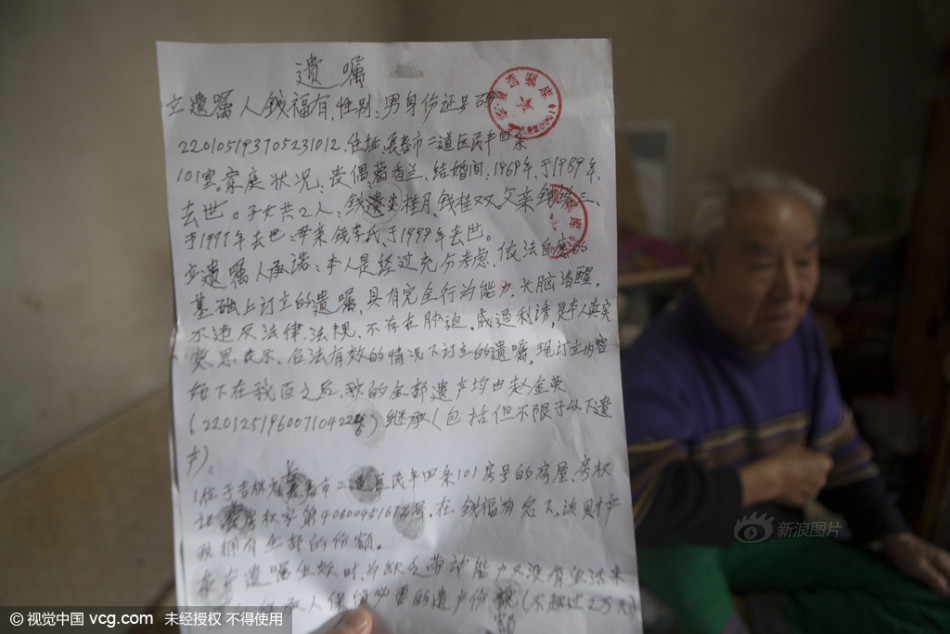 遗嘱
立遗嘱人钱福有,性别:男身份证号码:
220105193705231012,住址,长春市二道区民丰四条
101室。家庭状况:丧偶葛香兰、结婚间,1969年,于1989年,
去世。子女共2人:钱桂月、钱桂双。父亲钱
于1977年去世;母亲钱李氏,于1999年去世。
立遗嘱人承诺:本人是经过充分考虑、依法自愿的
基础上订立的遗嘱,具有完全行为能力,头脑清醒,
不违反法律、法规,不存在胁迫,或遇利诱,是本人真实
意思表示,合法有效的情况下订立的遗嘱。现订立内容
如下在我百之后,我的全部遗产均由赵金英
(2201251960071042)继承(包括但不限于以下遗
产)。
1.位于吉林省长春市二道区民丰四条101房号的房屋,房权
证房权字第40600451号,在钱福有名下。该财产
我拥有全部的份额。
在遗嘱生效时,如缺乏劳动能力又没有生活来
人保留必要的遗产份额(不超过2万
新浪图片
© 视觉中国 vcg.com 未经授权 不得使用